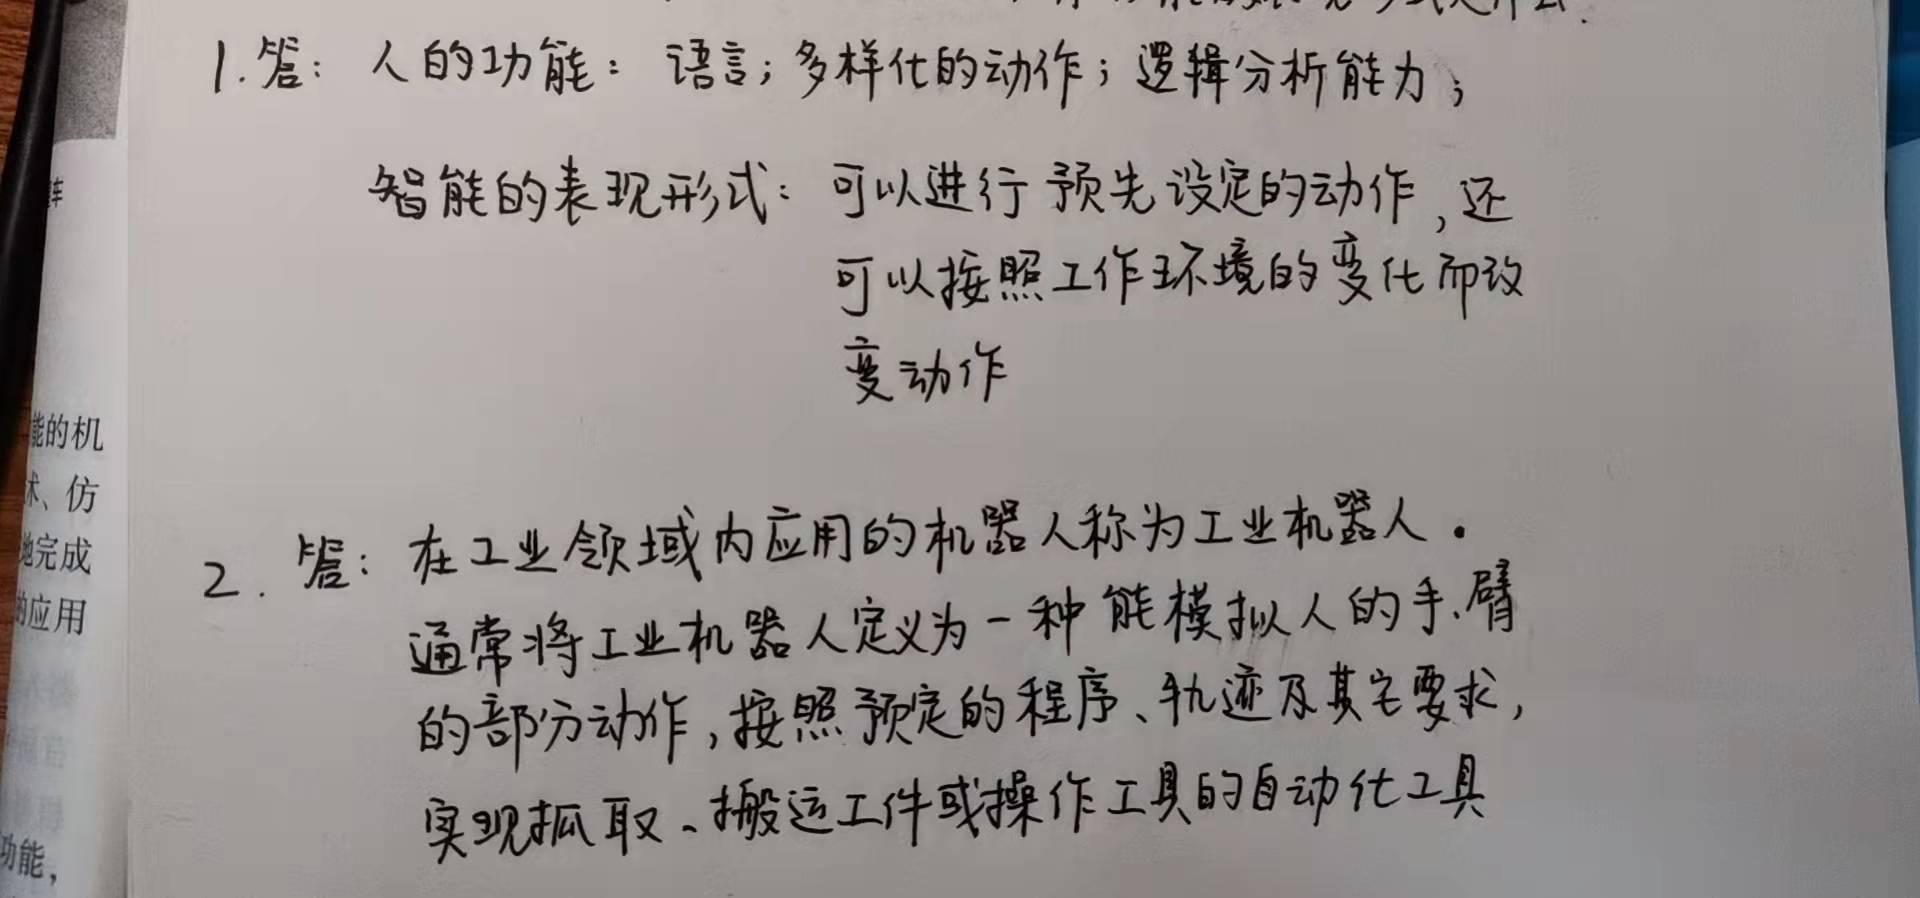 1.答：人的功能：语言；多样化的动作；逻辑分析能力；
智能的表现形式：可以进行预先设定的动作，还
可以按照工作环境的变化而改
变动作
2.答：在工业领域内应用的机器人称为工业机器人.
通常将工业机器人定义为一种能模拟人的手、臂
的部分动作，按照预定的程序、轨迹及其它要求，
实现抓取、搬运工件或操作工具的自动化工具
车
能的机
术、仿
地完成
的应用
功能，